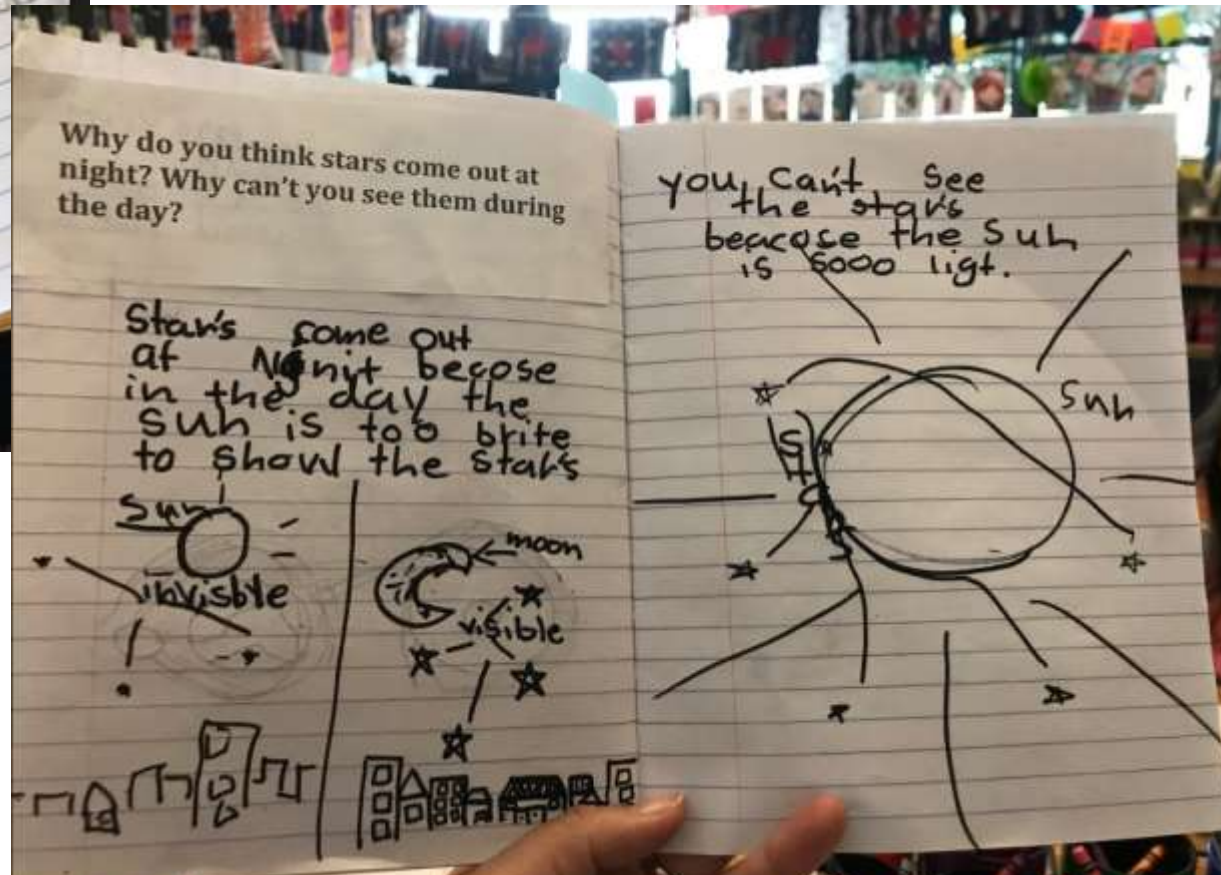 Why do you think stars come out at
night? Why can't you see them during
the day?
Star's come out
at Nnit becose
in the day the
sun is too brite
to show the stars
Sun
invisblle
moon
visible
you can't see
the stars
beacose the sun
is sooo ligt.
Sun
Stars